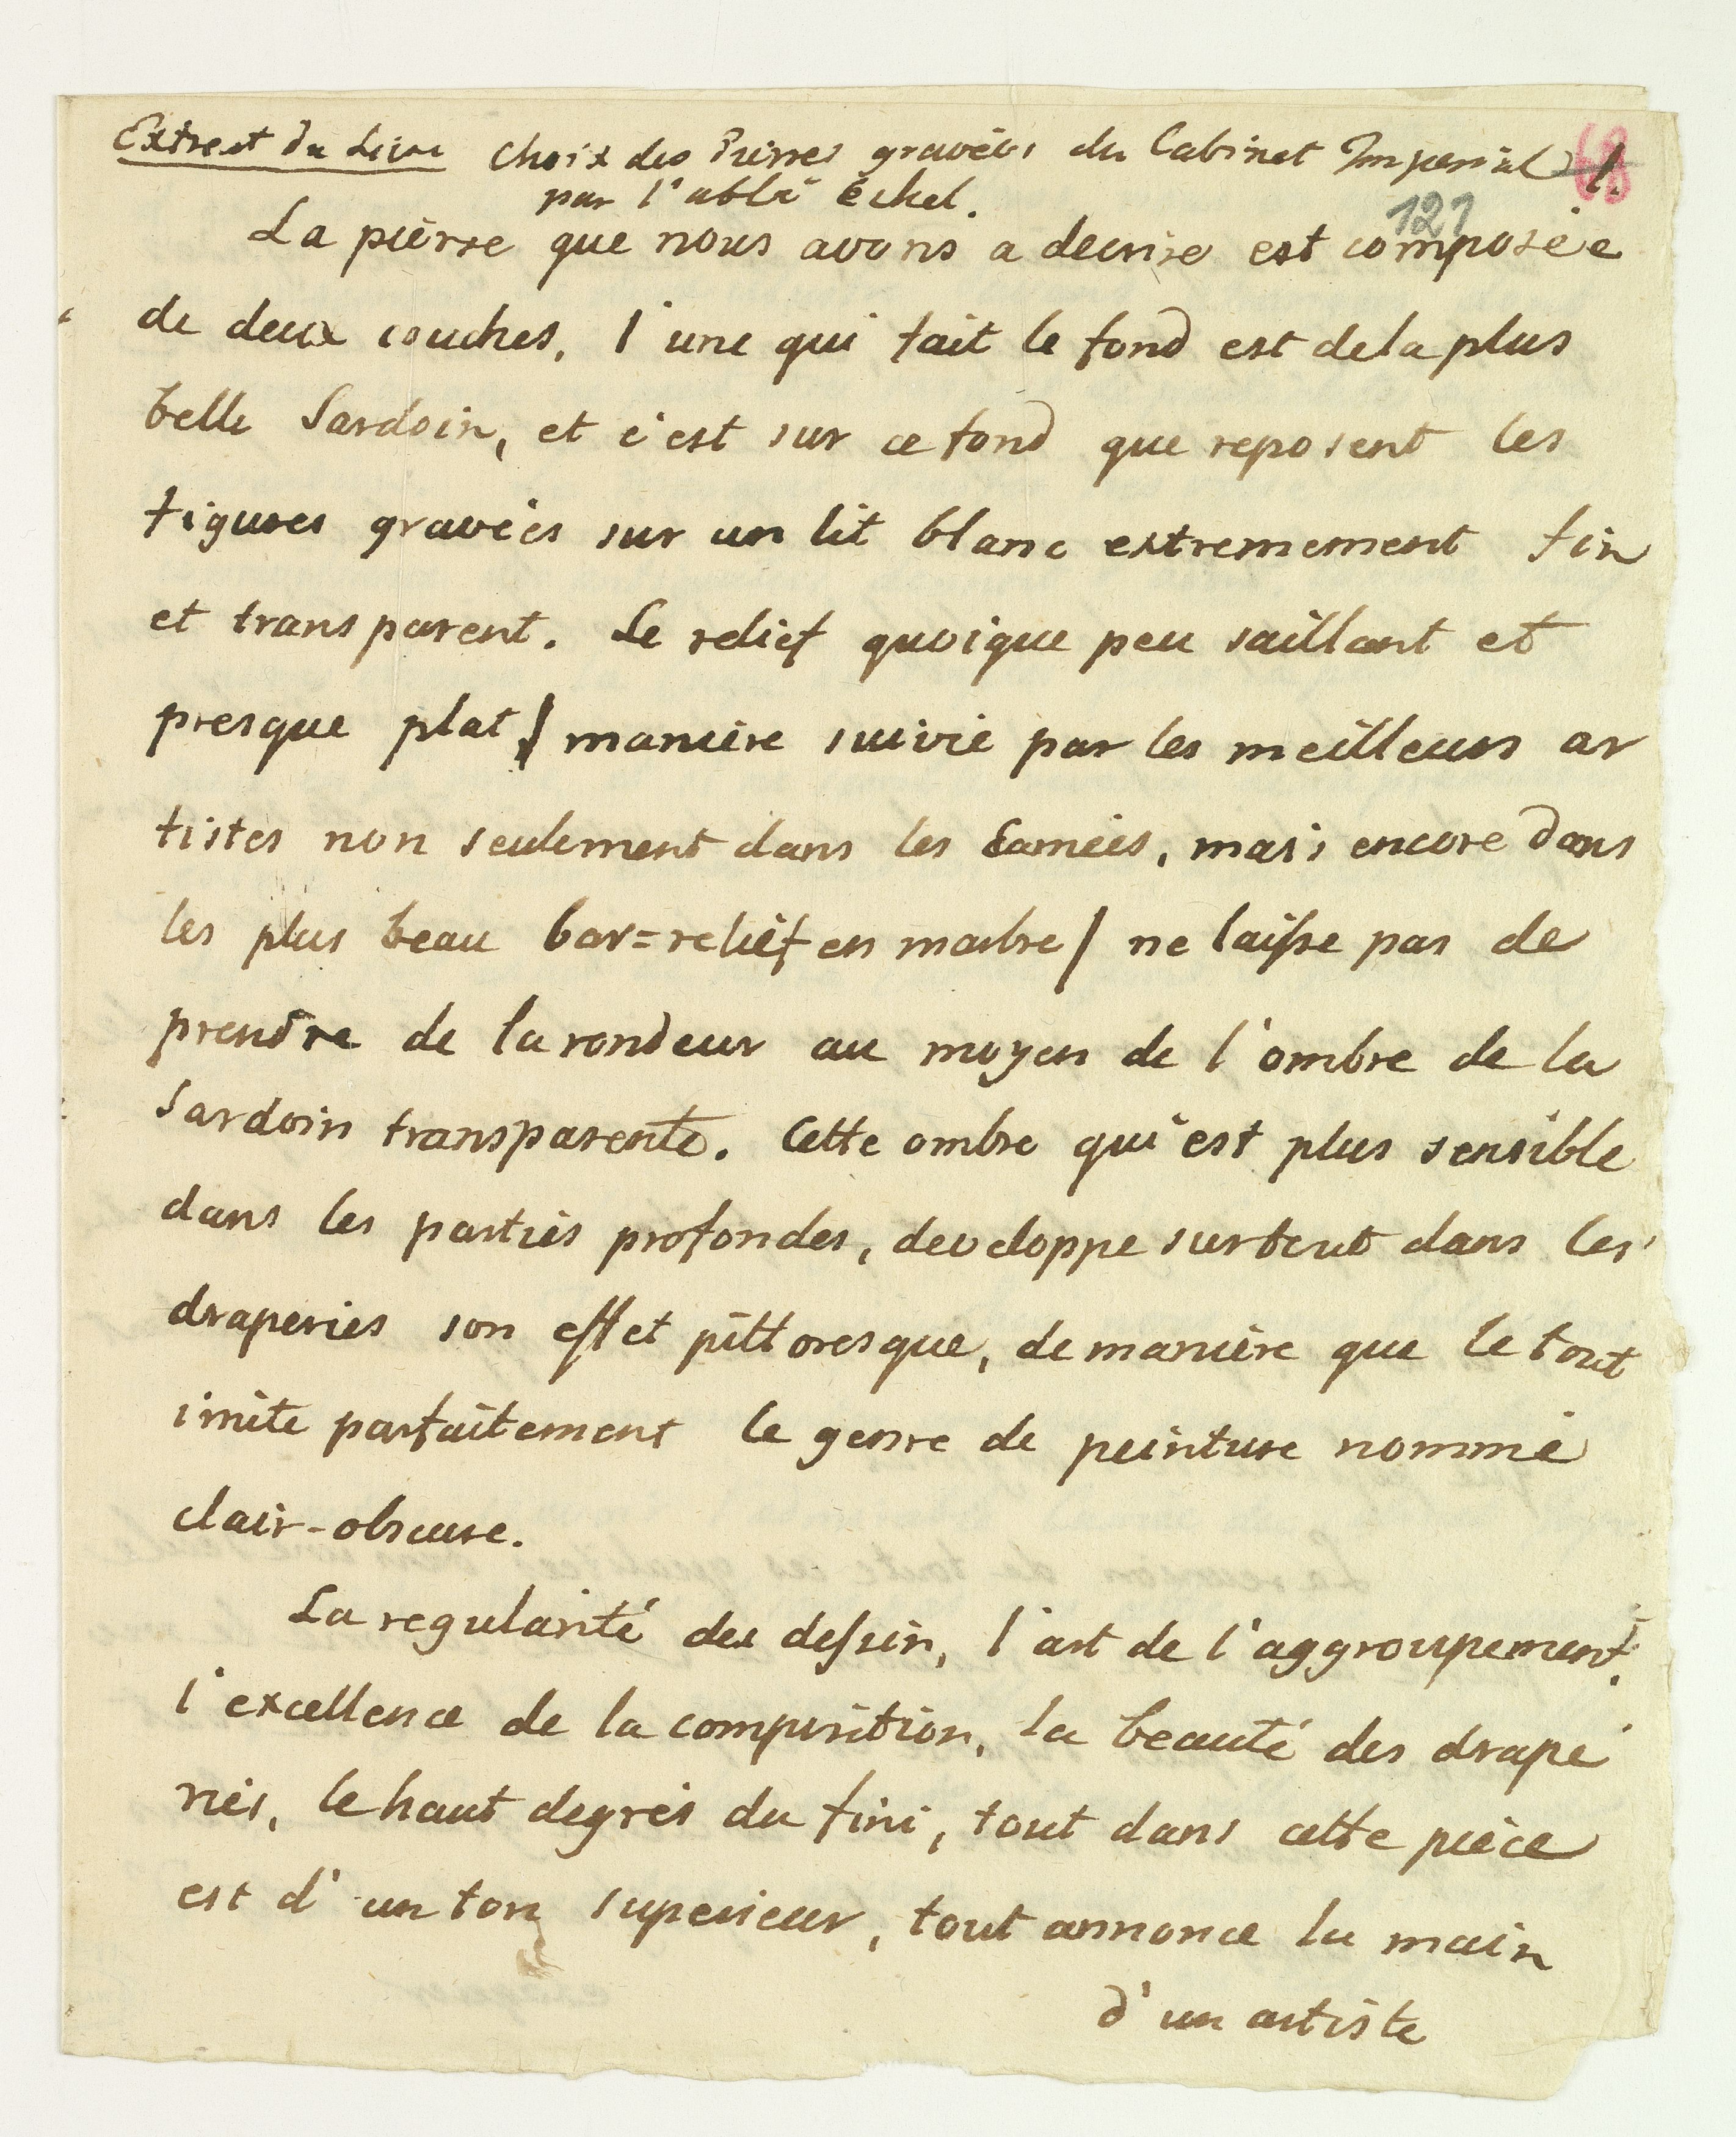 Extrait du Livre Choix des Pierres gravées du Cabinet Imperial 1.
68
par l'abbé Eckel.
121
La pierre que nous avons a decrire est composée
de deux couches, l'une qui fait le fond est de la plus
belle Sardoin, et c'est sur ce fond que reposent les
figures gravées sur un lit blanc extremement fin
et transparent. Le relief quoique peu saillant et
presque plat / maniere suivie par les meilleurs ar
tistes non seulement dans les Camées, mais encore dans
les plus beau bas=relief en marbre / ne laisse pas de
prendre de la rondeur au moyen de l'ombre de la
Sardoin transparente. Cette ombre qui est plus sensible
dans les parties profondes, developpe surtout dans les
draperies son effet pittoresque, de maniere que le tout
imite parfaitement le genre de peinture nommé
clair-obscure.
La regularité des dessin, l'art de l'aggroupement,
l'excellence de la composition, la beauté des drape
ries, le haut degrés du fini, tout dans cette pièce
est d'un ton superieur, tout annonce la main
d'un artiste